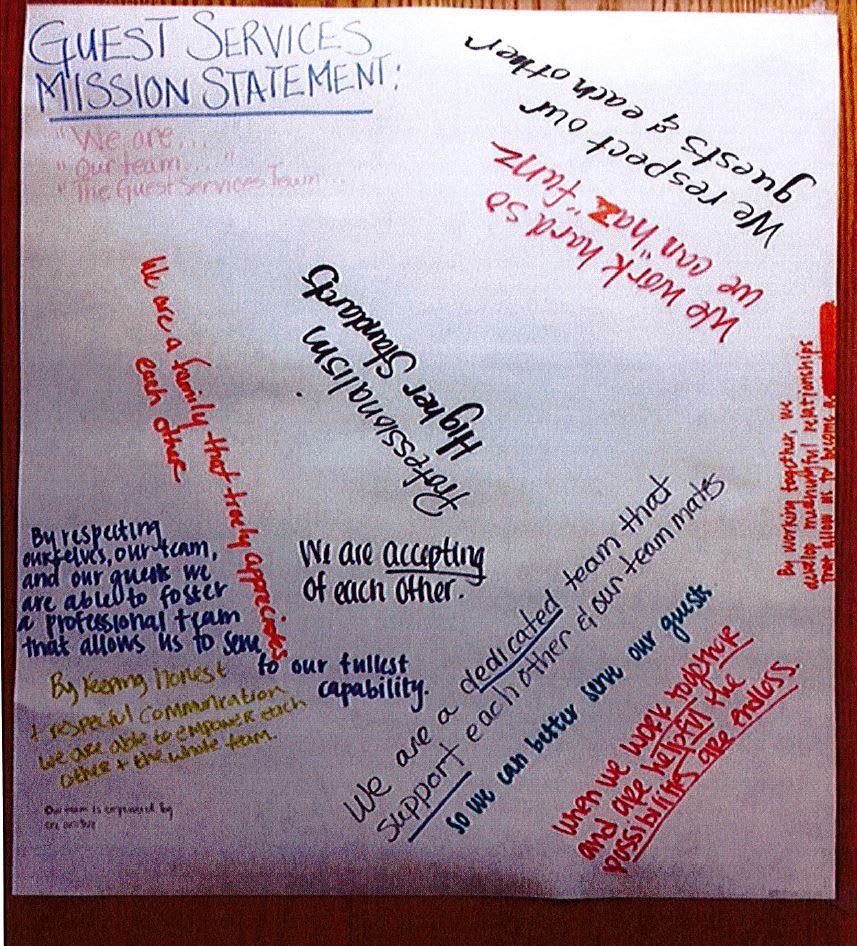 GUEST SERVICES
MISSION STATEMENT:
"We are...
"Our team..."
"The Guest Services Team
We respect our
guests & each other
We work hard so
we can "haz" funz
We are a family that truely appreciates
each other
Professionalism
Higher Standards
By working together, we
develop meaningful relationships
that allow us to become
By respecting
ourselves, our team,
and our guests we
are able to foster
a professional team
that allows us to serve
to our fullest
capability.
We are accepting
of each other.
By Keeping Honest
+ respectful communication
we are able to empower each
other + the whole team.
We are a dedicated team that
support each other & our team mates
so we can better serve our guests.
when we work together
and are helpful the
possibilities are endless.
Our team is empowered by